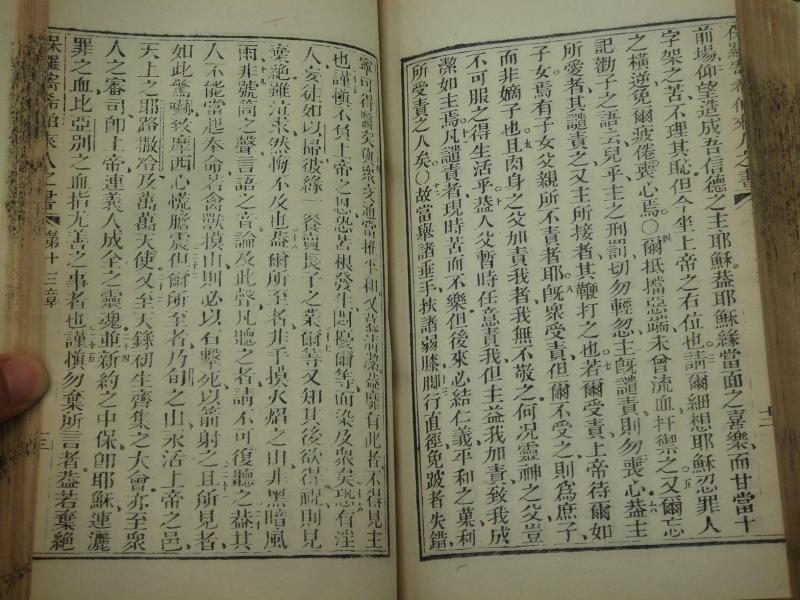 保羅寄希伯來人之書
前場仰望造成吾信德之主耶穌蓋耶穌緣當面之喜樂而甘當十
字架之苦不理其恥但今坐上帝之右位也請爾細想耶穌忍罪人
之橫逆免爾疲倦喪心焉○爾抵擋惡端未曾流血扞禦之又爾忘
記勸子之語云兒乎主之刑罰切勿輕忽主既譴責則勿喪心蓋主
所愛者其譴責之又主所接者其鞭打之也若爾受責上帝待爾如
子女焉有子女父親所不責者耶既眾受責但爾不受之則為庶子
而非嫡子也且肉身之父加責我者我無不敬之何況靈神之父豈
不可服之得生活乎蓋人父暫時任意責我但主益我加責致我成
潔如主焉凡譴責者現時苦而不樂但後來必結仁義平和之菓利
所受責之人矣○故當舉諸垂手扶諸弱膝腳行直徑免跛者失錯
寧可得醫矣 有此者不得見主
也謹慎不負上帝之恩恐苦根發生問擾爾等而染及眾矣恐有淫
人妄徒如以掃彼緣一餐賣長子之業爾等又知其後欲得祝則見
棄絕雖泣求然悔不及也蓋爾所至者非手摸火焰之山非黑暗風
雨非號筒之聲言語之音論及此聲凡聽之者請不可復聽之蓋其
人不能當起奉命若禽獸摸山則必以石擊死以箭射之且所見者
如此驚嚇致摩西心慌膽震但爾所至者乃旬之山永活上帝之邑
天上之耶路撒冷及萬萬天使又至天錄初生齊集之大會亦至眾
人之審司即上帝連義人成全之靈魂並新約之中保即耶穌連灑
罪之血比亞別之血指尤善之事者也謹慎勿棄所言者蓋若棄絕
保羅寄希伯來人之書 第十三章